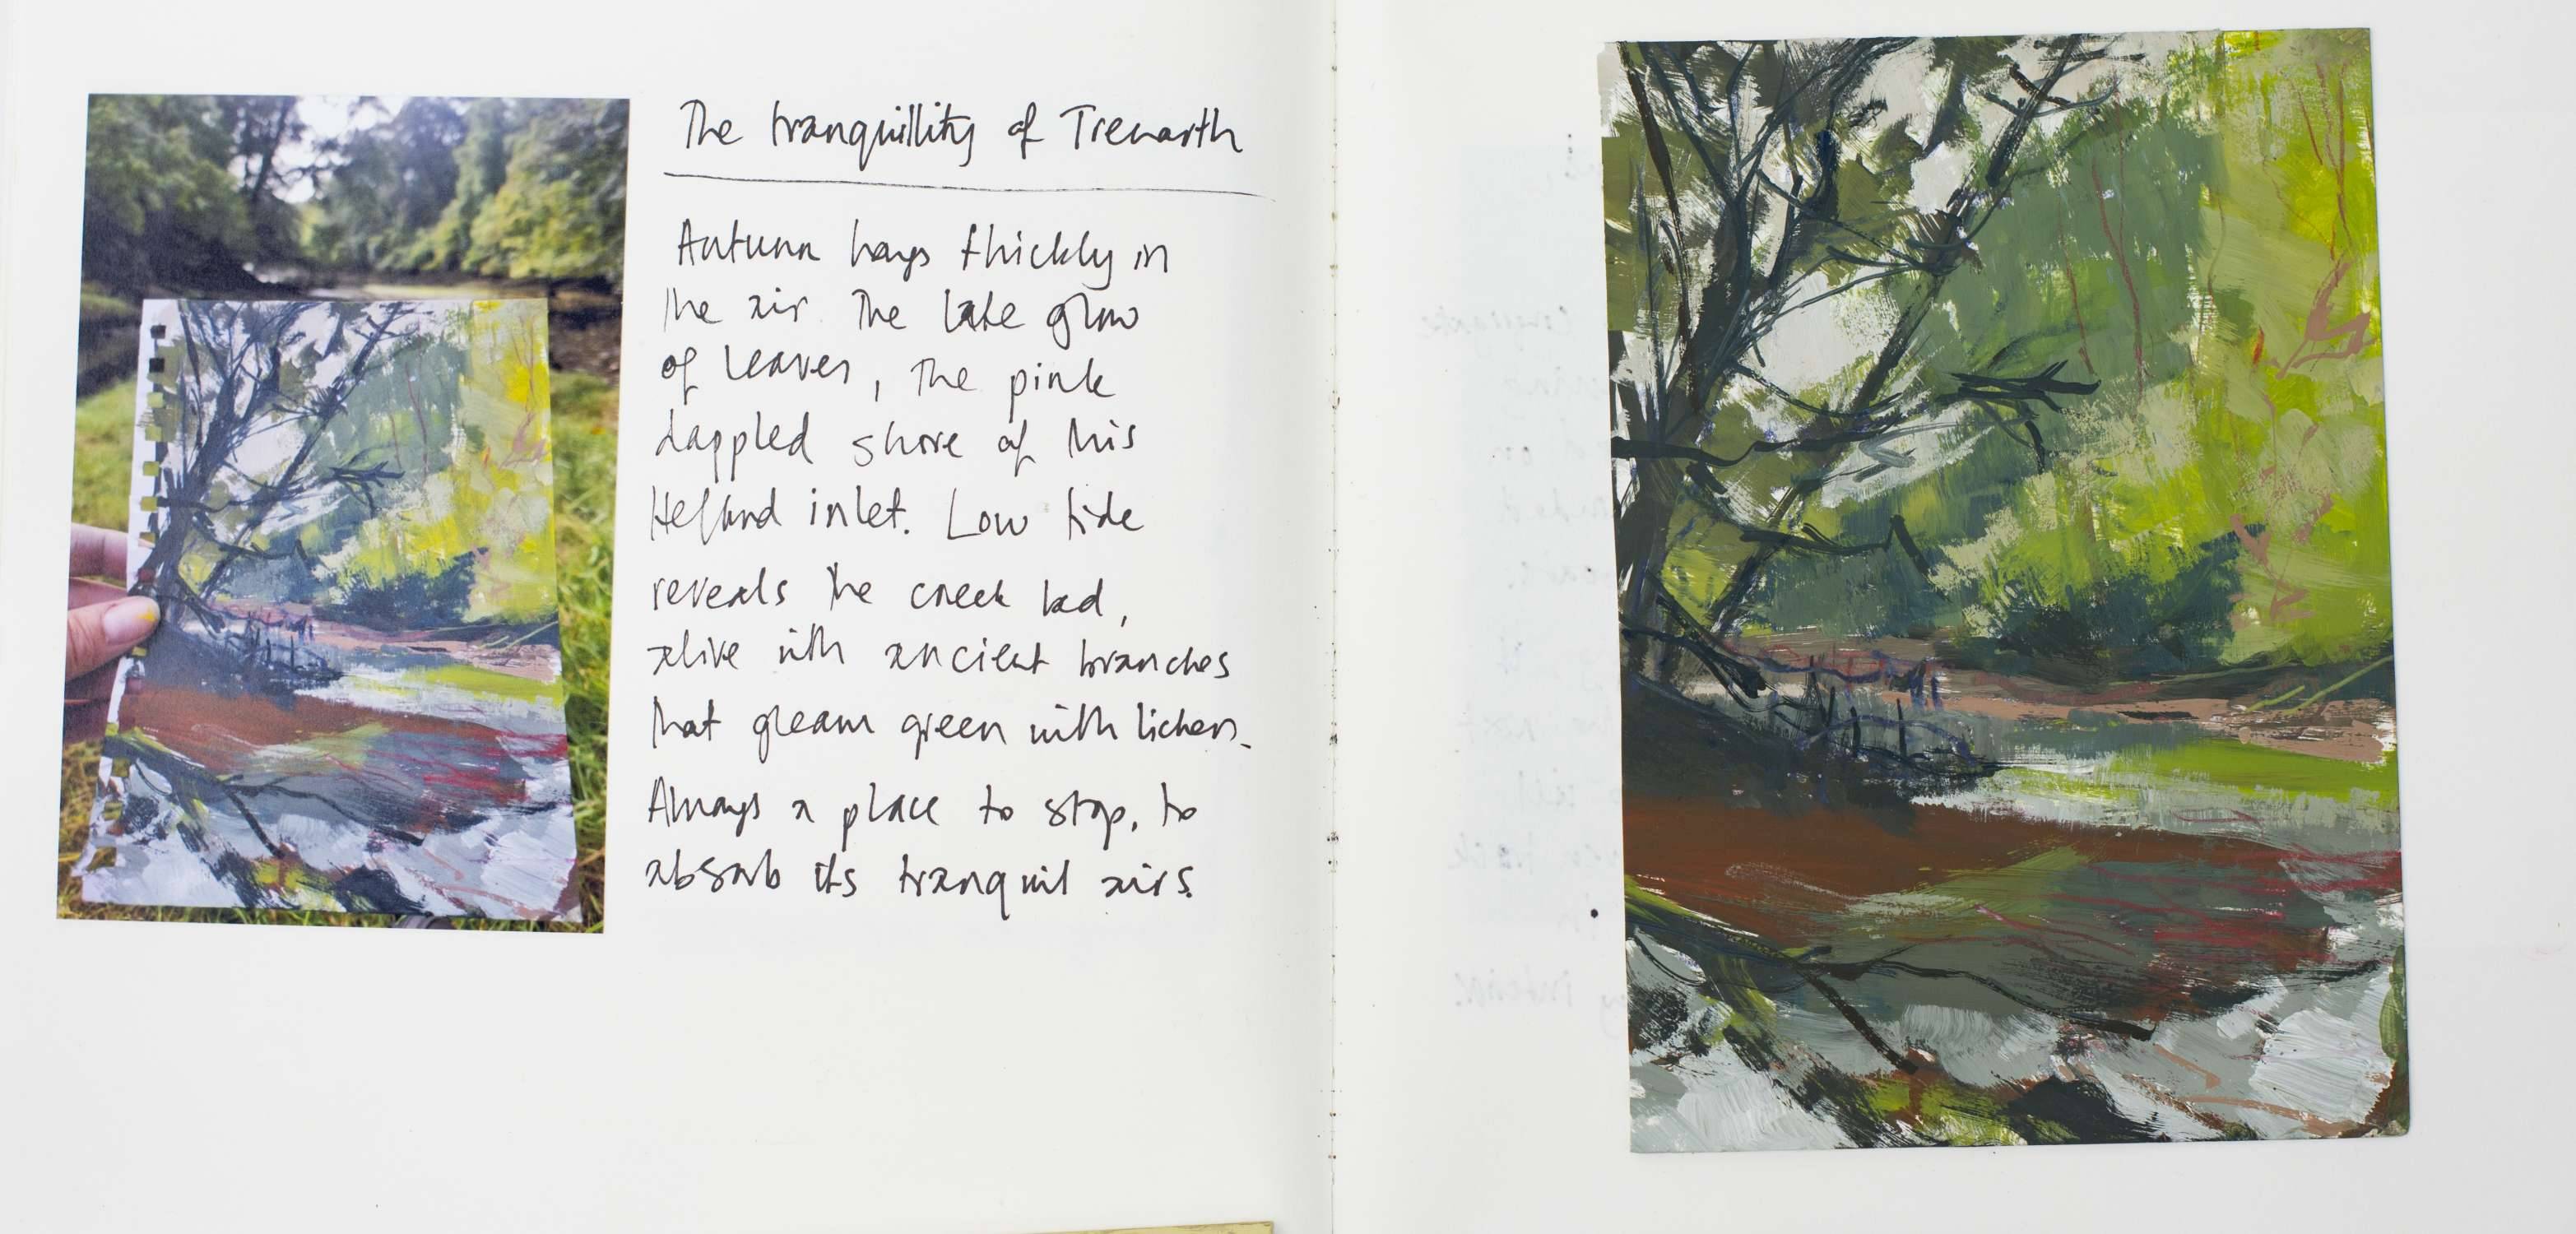 The tranquillity of Trenarth
Autumn hangs thickly in
the air. The late glow
of leaves, the pink
dappled shore of this
Helford inlet. Low tide
reveals the creek bed,
alive with ancient branches
that gleam green with lichen.
Always a place to stop, to
absorb its tranquil airs.